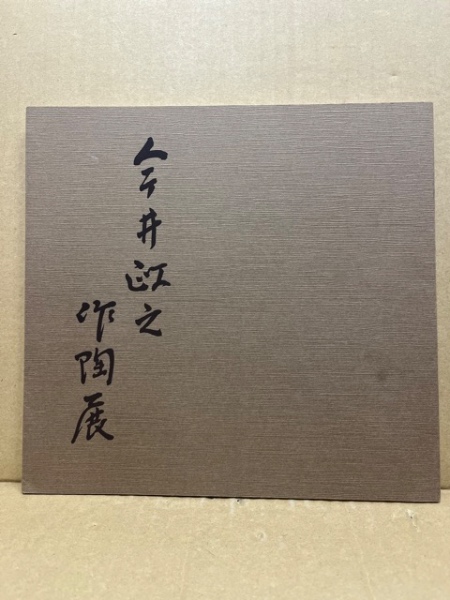 今井政之
作陶展